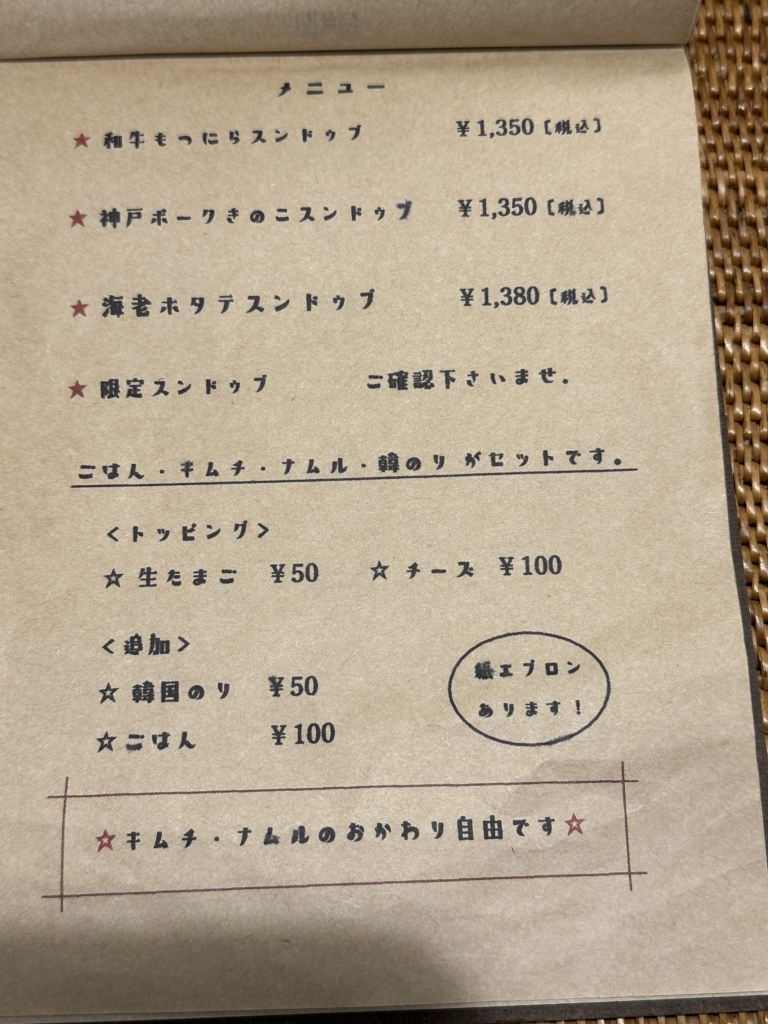 メニュー
★ 和牛もつにらスンドゥブ ¥1,350〔税込〕
★ 神戸ポークきのこスンドゥブ ¥1,350〔税込〕
★ 海老ホタテスンドゥブ ¥1,380〔税込〕
★ 限定スンドゥブ ご確認下さいませ。
ごはん・キムチ・ナムル・韓のり がセットです。
＜トッピング＞
☆ 生たまご ¥50 ☆ チーズ ¥100
＜追加＞
☆ 韓国のり ¥50
☆ごはん ¥100
紙エプロン
あります！
☆キムチ・ナムルのおかわり自由です☆